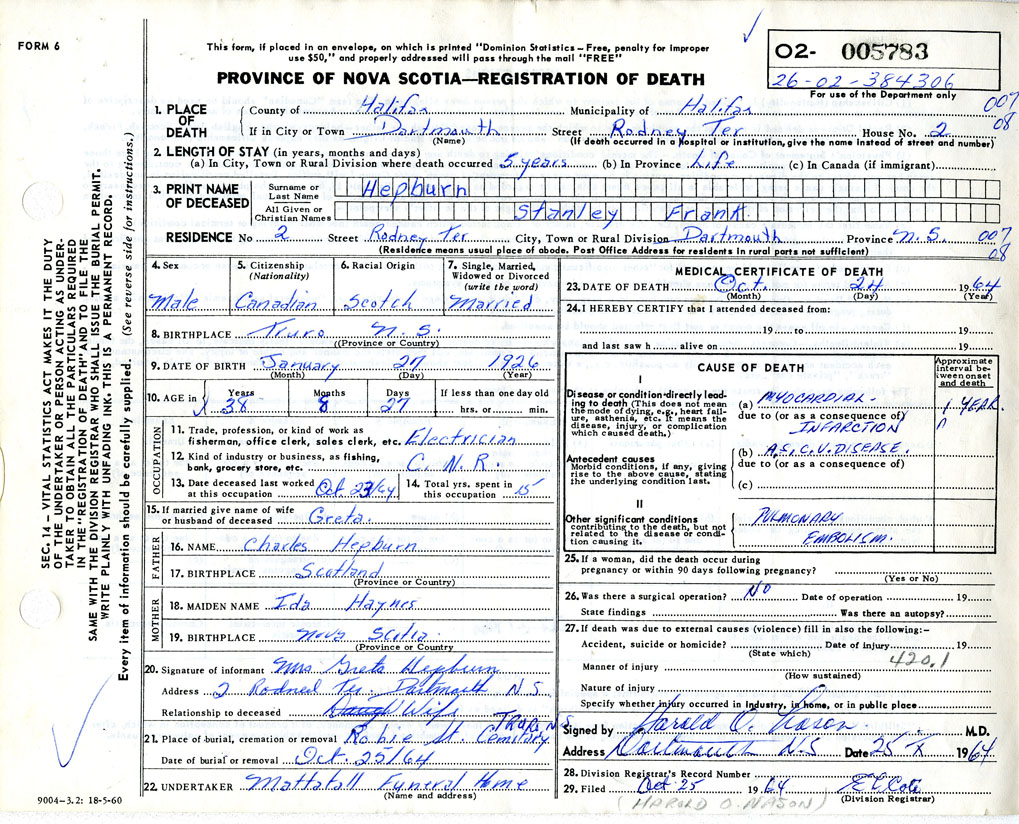 FORM 6
This form, if placed in an envelope, on which is printed "Dominion Statistics – Free, penalty for improper
use $50," and properly addressed will pass through the mail "FREE"
PROVINCE OF NOVA SCOTIA—REGISTRATION OF DEATH
O2- 005783
26-02-384306
For use of the Department only
007
08
1. PLACE OF DEATH
County of Halifax Municipality of Halifax
If in City or Town Dartmouth Street Rodney Ter House No. 2
(Name) (If death occurred in a hospital or institution, give the name instead of street and number)
2. LENGTH OF STAY (in years, months and days)
(a) In City, Town or Rural Division where death occurred 5 years (b) In Province Life (c) In Canada (if immigrant)
3. PRINT NAME OF DECEASED
Surname or Last Name Hepburn
All Given or Christian Names Stanley Frank
RESIDENCE No 2 Street Rodney Ter City, Town or Rural Division Dartmouth Province N.S. 007
08
(Residence means usual place of abode. Post Office Address for residents in rural parts not sufficient)
4. Sex Male
5. Citizenship (Nationality) Canadian
6. Racial Origin Scotch
7. Single, Married, Widowed or Divorced (write the word) Married
8. BIRTHPLACE Truro N.S.
((Province or Country)
9. DATE OF BIRTH January 27 1926
(Month) (Day) (Year)
10. AGE in Years 38 Months 8 Days 27 If less than one day old
hrs. or min.
OCCUPATION
11. Trade, profession, or kind of work as
fisherman, office clerk, sales clerk, etc. Electrician
12. Kind of industry or business, as fishing,
bank, grocery store, etc. C.N.R.
13. Date deceased last worked
at this occupation Oct 23/64
14. Total yrs. spent in
this occupation 15
15. If married give name of wife
or husband of deceased Greta.
FATHER
16. NAME Charles Hepburn
17. BIRTHPLACE Scotland
(Province or Country)
MOTHER
18. MAIDEN NAME Ida Haynes
19. BIRTHPLACE Nova Scotia
(Province or Country
20. Signature of informant Mrs Greta Hepburn
Address 2 Rodned Ter. Dartmouth N S
Relationship to deceased Daugh Wife
TRURO N.S
21. Place of burial, cremation or removal Robie St. Cemitary
Date of burial or removal Oct. 25/64
22. UNDERTAKER Mattatall Funeral Home
(Name and address)
9004–3.2: 18-5-60
SEC. 14 – VITAL STATISTICS ACT MAKES IT THE DUTY
OF THE UNDERTAKER OR PERSON ACTING AS UNDER-
TAKER TO OBTAIN ALL THE PARTICULARS REQUIRED
IN THE "REGISTRATION OF DEATH" AND TO FILE THE
SAME WITH THE DIVISION REGISTRAR WHO SHALL ISSUE THE BURIAL PERMIT.
WRITE PLAINLY WITH UNFADING INK. THIS IS A PERMANENT RECORD.
Every item of information should be carefully supplied. (See reverse side for instructions.)
MEDICAL CERTIFICATE OF DEATH
23. DATE OF DEATH Oct. 24 1964
(Month) (Day) (Year)
24. I HEREBY CERTIFY that I attended deceased from:
19 to 19
and last saw h alive on 19
CAUSE OF DEATH
Approximate interval between onset and death
I
Disease or condition directly lead-
ing to death (This does not mean
the mode of dying, e.g., heart fail-
ure, asthenia, etc. It means the
disease, injury, or complication
which caused death.)
(a) MYOCARDIAL 1 YEAR.
due to (or as a consequence of)
INFARCTION
Antecedent causes
Morbid conditions, if any, giving
rise to the above cause, stating
the underlying condition last.
(b) A.S.C.V. DISEASE.
due to (or as a consequence of)
(c)
II
Other significant conditions
contributing to the death, but not
related to the disease or condi-
tion causing it.
PULMONARY
EMBOLISM.
25. If a woman, did the death occur during
pregnancy or within 90 days following pregnancy?
(Yes or No)
26. Was there a surgical operation? NO Date of operation 19
State findings Was there an autopsy?
27. If death was due to external causes (violence) fill in also the following:–
Accident, suicide or homicide? Date of injury 19
(State which)
420.1
Manner of injury
(How sustained)
Nature of injury
Specify whether injury occurred in industry, in home, or in public place
Signed by Harold O. Nason M.D.
Address Dartmouth N.S Date 25 X 1964
28. Division Registrar's Record Number
29. Filed Oct 25 1964 E L Cote
(HAROLD O. NASON) (Division Registrar)